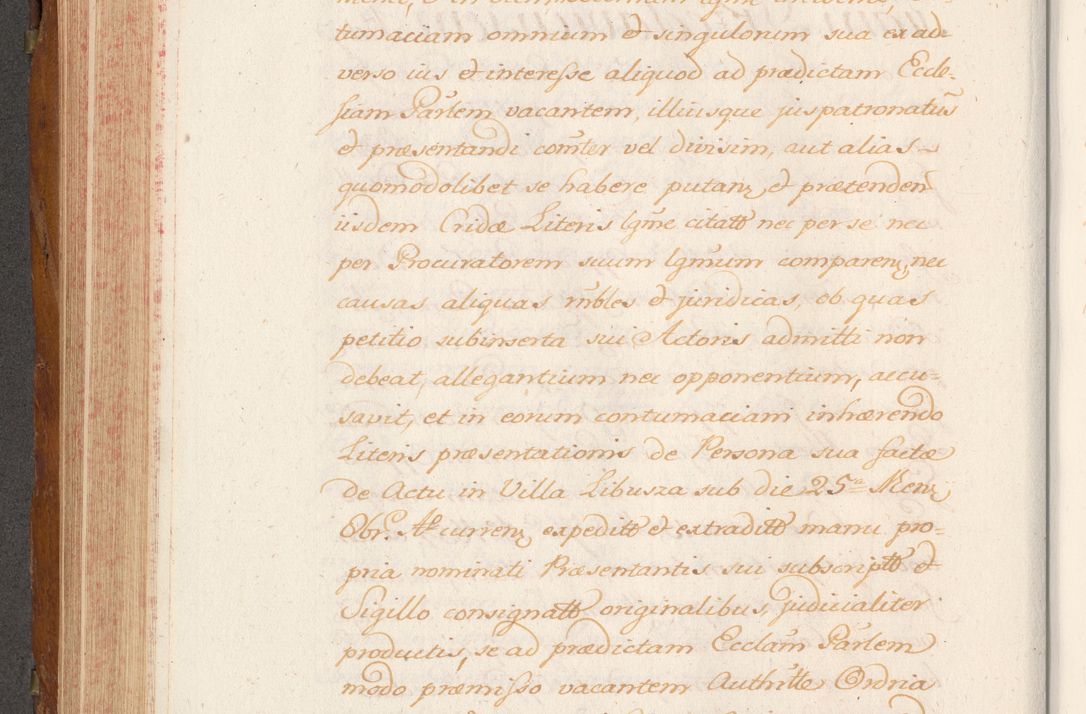 tumaciam omnium et singulorum sua ex ad-
verso ius et interesse aliquod ad prædictam Eccle-
siam Parlem vacantem, illiusque juspatronatus
et præsentandi comter vel divisim, aut alias
quomodolibet se habere putanz et prætenden
iisdem Cridæ Literis lgme citatt nec per se nec
per Procuratorem suum lgmum comparenz, nec
causas aliquas rnbles et juridicas, ob quas
petitio subinserta sui Actoris admitti non
debeat, allegantium nec opponentium, accu-
savit, et in eorum contumaciam inhærendo
Literis præsentationis de Persona sua factæ
de Actu in Villa Libusza sub die 25ta Menz
Obr. At currenz expeditt et extraditt manu pro-
pria nominati Præsentantis sui subscriptt et
Sigillo consignatt originalibus, judicialiter
productis, se ad prædictam Ecclam Parlem
modo præmisso vacantem Authritte Ordria